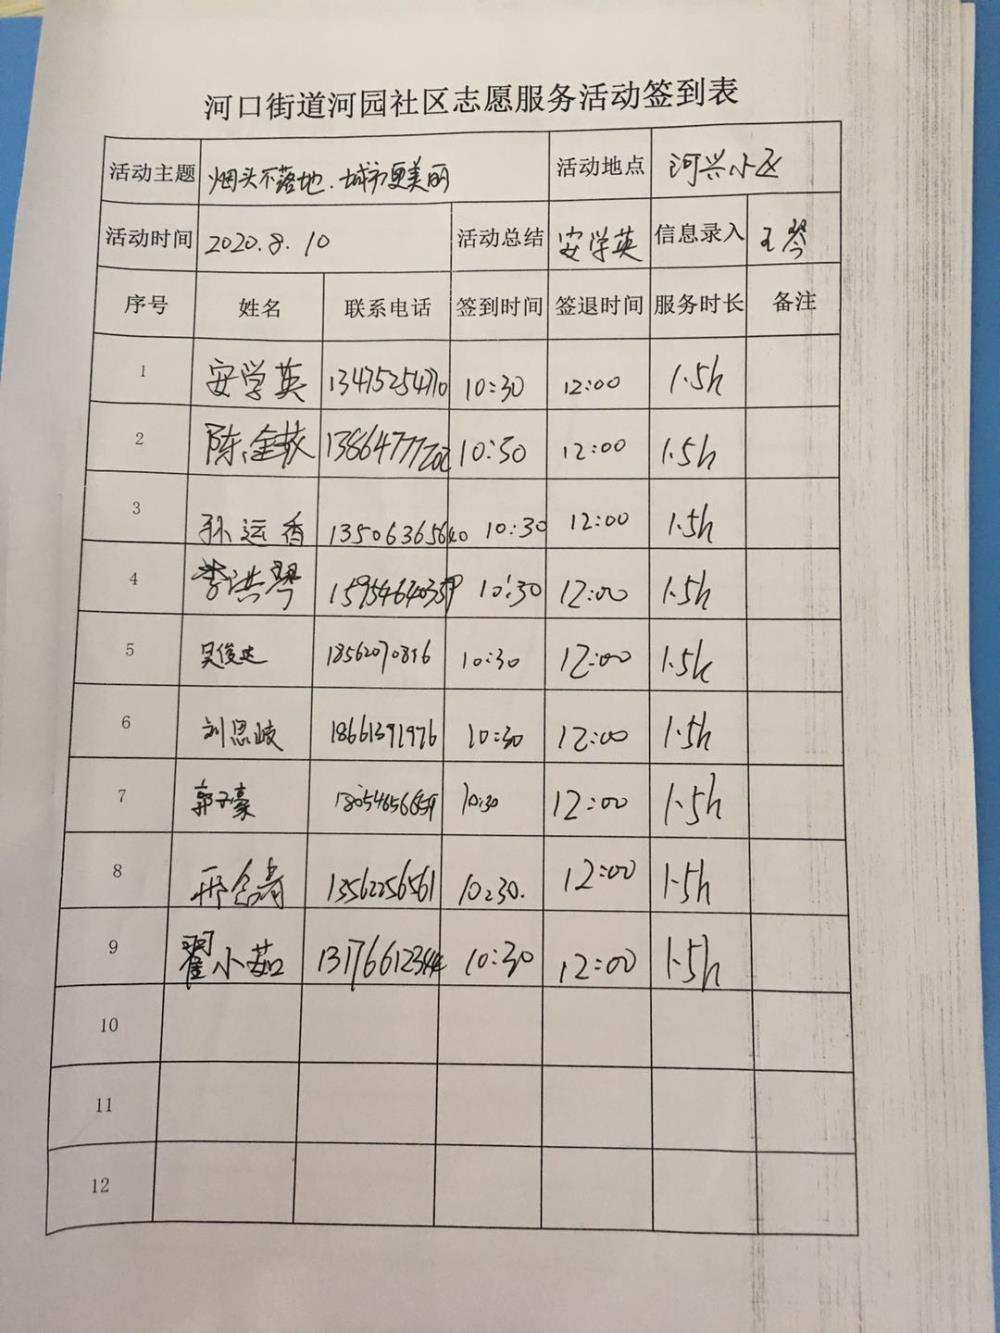 河口街道河园社区志愿服务活动签到表
活动主题 烟头不落地.城市更美丽 活动地点 河兴小区
活动时间 2020.8.10 活动总结 安学英 信息录入 王琴
序号 姓名 联系电话 签到时间 签退时间 服务时长 备注
1 安学英 13475254770 10:30 12:00 1.5h
2 陈金枝 13864777202 10:30 12:00 1.5h
3 孙运香 13506365640 10:30 12:00 1.5h
4 李洪琴 15954640359 10:30 12:00 1.5h
5 吴俊达 18562070816 10:30 12:00 1.5h
6 刘思岐 18661391976 10:30 12:00 1.5h
7 郭子豪 18054656659 10:30 12:00 1.5h
8 邢含青 13562256561 10:30. 12:00 1.5h
9 翟小茹 13176612344 10:30 12:00 1.5h
10
11
12